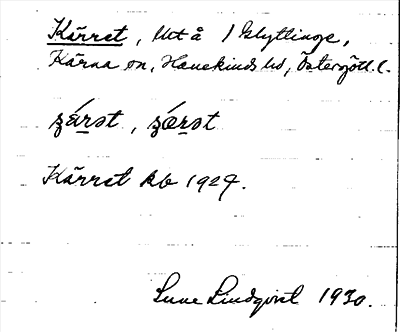 Kärret, lht å 1 Glyttinge,
Kärna sn, Hanekinds hd, Östergötl. l.
Kärret kb 1929.
Sune Lindqvist 1930.